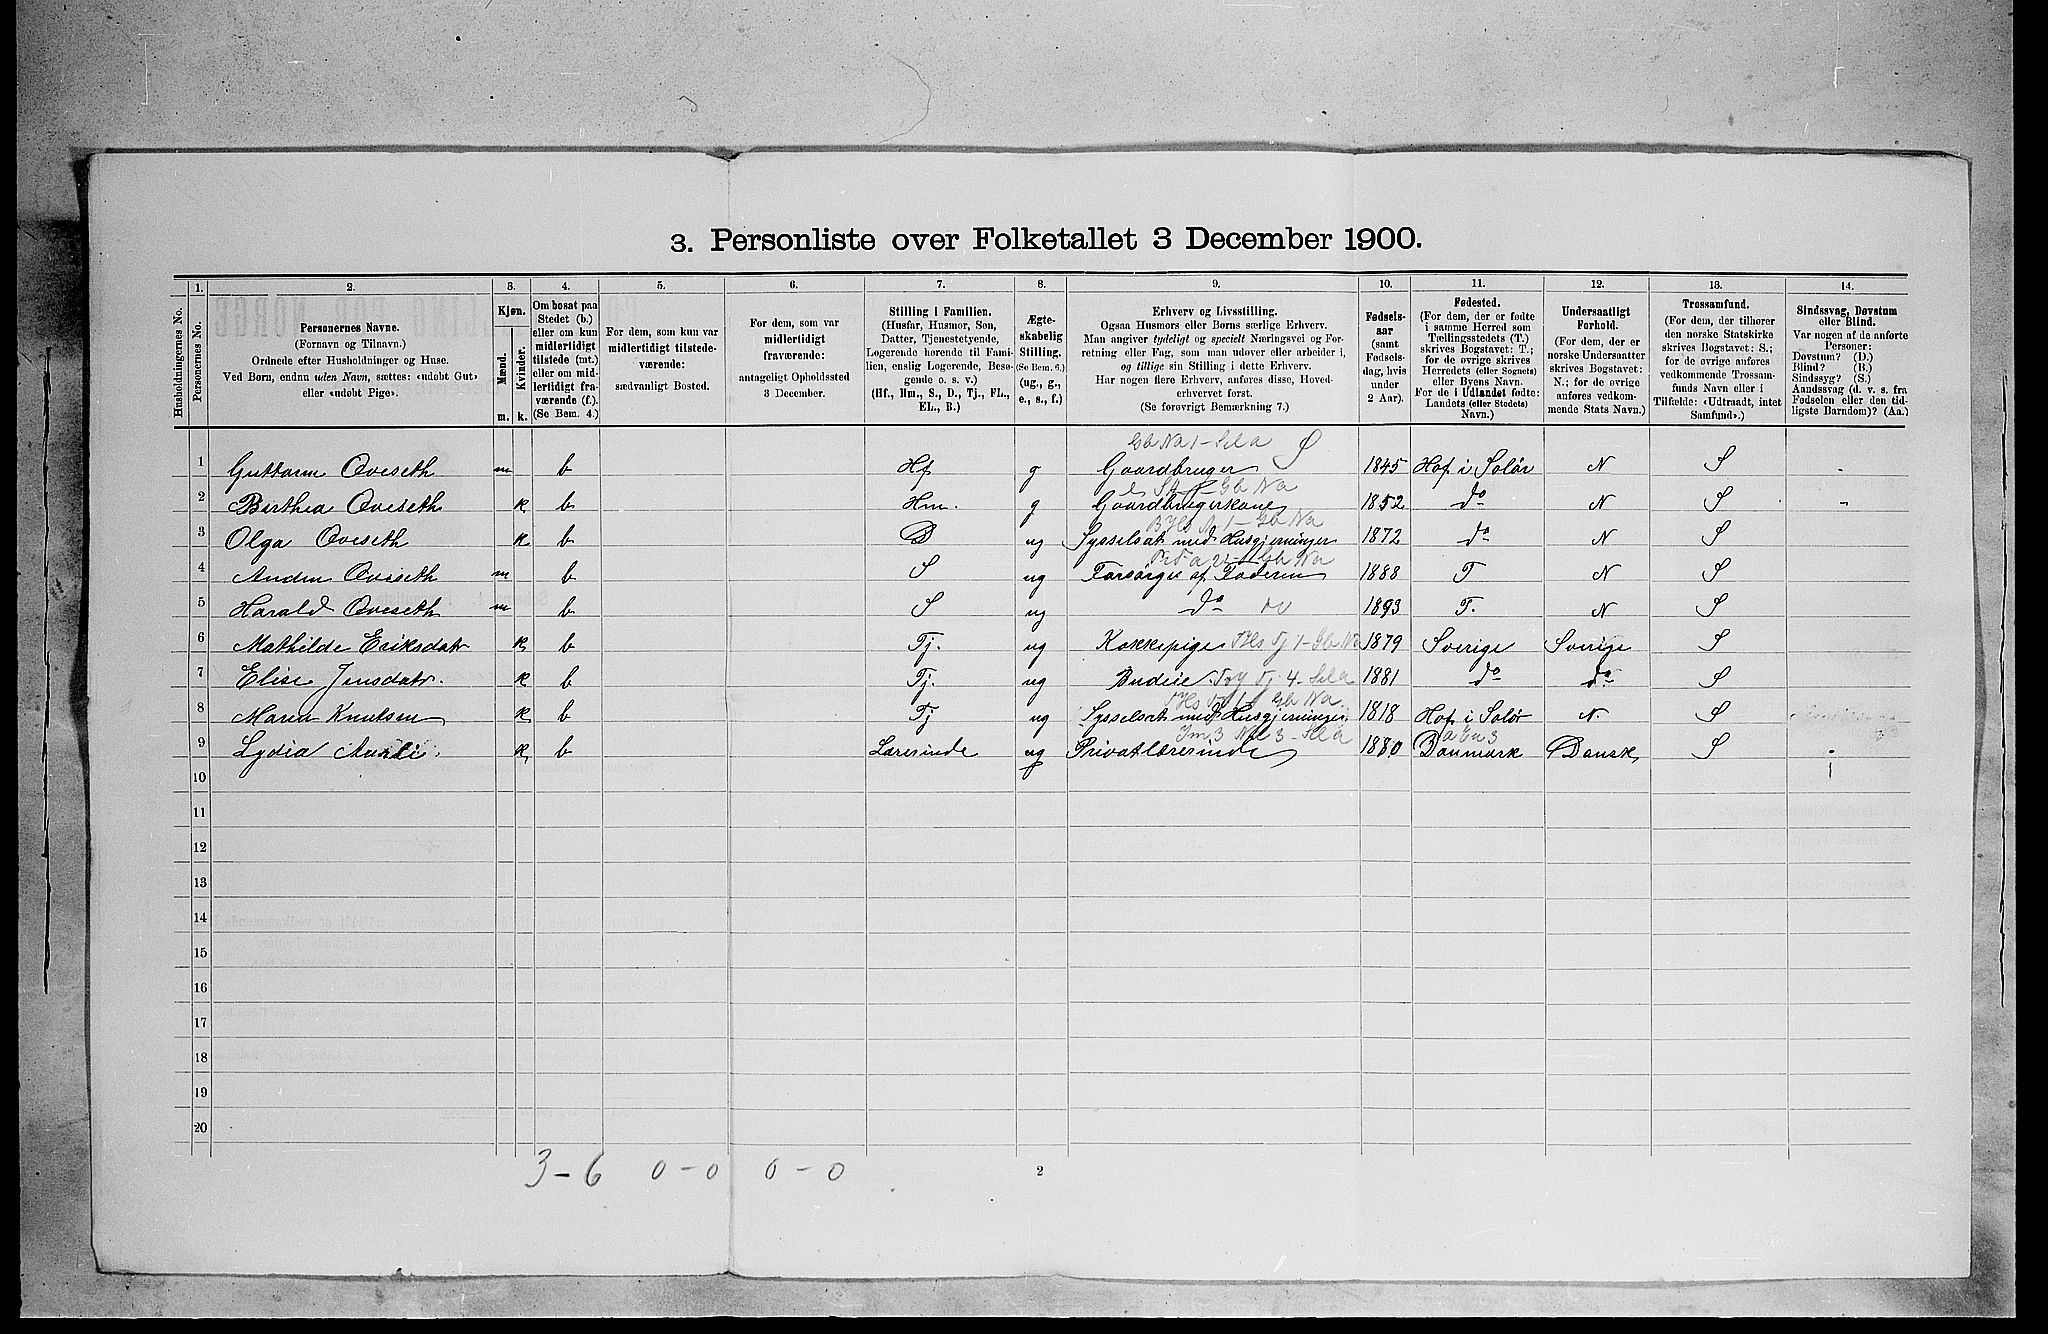 3. Personliste over Folketallet 3 December 1900.
1. 2. 3. 4. 5. 6. 7. 8. 9. 10. 11. 12. 13. 14.
Husholdningernes No.
Personernes No.
Personernes Navne.
(Fornavn og Tilnavn.)
Ordnede efter Husholdninger og Huse.
Ved Børn, endnu uden Navn, sættes: «udøbt Gut»
eller «udøbt Pige».
Kjøn.
Mænd.
Kvinder.
m. k.
Om bosat paa
Stedet (b.)
eller om kun
midlertidigt
tilstede (mt.)
eller om mid-
lertidigt fra-
værende (f.).
(Se Bem. 4.)
For dem, som kun var
midlertidigt tilstede-
værende:
sædvanligt Bosted.
For dem, som var
midlertidigt
fraværende:
antageligt Opholdssted
3 December.
Stilling i Familien.
(Husfar, Husmor, Søn,
Datter, Tjenestetyende,
Logerende hørende til Fami-
lien, enslig Logerende, Besø-
gende o. s. v.)
(Hf., Hm., S., D., Tj., FL.,
EL., B.)
Ægte-
skabelig
Stilling.
(Se Bem. 6.)
(ug., g.,
e., s., f.)
Erhverv og Livsstilling.
Ogsaa Husmors eller Børns særlige Erhverv.
Man angiver tydeligt og specielt Næringsvei og For-
retning eller Fag, som man udøver eller arbeider i,
og tillige sin Stilling i dette Erhverv.
Har nogen flere Erhverv, anføres disse, Hoved-
erhvervet først.
(Se forøvrigt Bemærkning 7.)
Fødsels-
aar
(samt
Fødsels-
dag, hvis
under
2 Aar).
Fødested.
(For dem, der er fødte
i samme Herred som
Tællingsstedets (T.)
skrives Bogstavet: T.;
for de øvrige skrives
Herredets (eller Sognets)
eller Byens Navn.
For de i Udlandet fødte:
Landets (eller Stedets)
Navn.)
Undersaatligt
Forhold.
(For dem, der er
norske Undersaatter
skrives Bogstavet:
N.; for de øvrige
anføres vedkom-
mende Stats Navn.)
Trossamfund.
(For dem, der tilhører
den norske Statskirke
skrives Bogstavet: S.;
for de øvrige anføres
vedkommende Trossam-
funds Navn eller i
Tilfælde: «Udtraadt, intet
Samfund».)
Sindssvag, Døvstum
eller Blind.
Var nogen af de anførte
Personer:
Døvstum? (D.)
Blind? (B.)
Sindssyg? (S.)
Aandssvag (d. v. s. fra
Fødselen eller den tid-
ligste Barndom)? (Aa.)
Gb Na 1 - Sela S
1 Guttorm Oveseth m b Hf g Gaardbruger 1845 Hof i Solør N S
Gb Na
2 Birthea Oveseth k b Hm. g Gaardbrugerkone 1852 do N S
Gb Na
3 Olga Oveseth k b D ug Sysselsat med Husgjerninger 1872 do N S
Gb Na
4 Anden Oveseth m b S ug Forsørges af Faderen 1888 T N S
5 Harald Oveseth m b S ug do 1893 T. N S
6 Mathilde Eriksdatr k b Tj. ug Kokkepige Hs Tj 1 - Gb Na 1879 Sverige Sverige S
7 Elise Jensdatr. k b Tj. ug Budeie Tj 4. Sela 1881 do do S
Gb Na
8 Maren Knutsen k b Tj ug Sysselsat med Husgjerninger 1818 Hof i Solør N. S
3 - Sela
9 Lydia k b Lærerinde ug Privatlærerinde 1880 Danmark Dansk S
10
11
12
13
14
15
16
17
18
19
20
3 - 6 0 - 0 0 - 0
2